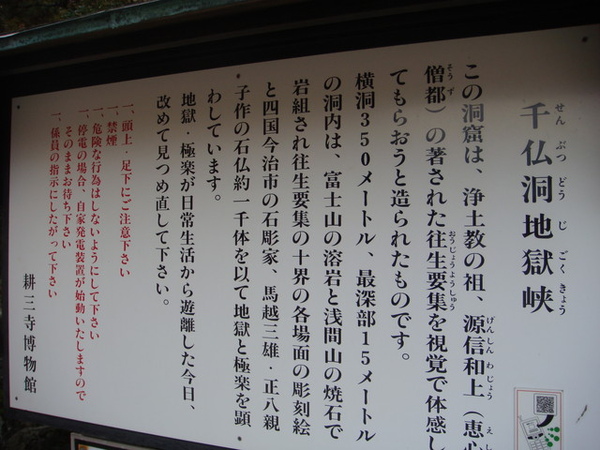 千仏洞地獄峡
せんぶつどうじごくきょう
この洞窟は、浄土教の祖、源信和上（恵心
げんしんわじょう えし
僧都）の著された往生要集を視覚で体感し
そうず おうじょうようしゅう
てもらおうと造られたものです。
横洞350メートル、最深部15メートル
の洞内は、富士山の溶岩と浅間山の焼石で
岩組され往生要集の十界の各場面の彫刻絵
と四国今治市の石彫家、馬越三雄・正八親
子作の石仏約一千体を以て地獄と極楽を顕
わしています。
地獄・極楽が日常生活から遊離した今日、
改めて見つめ直して下さい。
一、頭上・足下にご注意下さい
一、禁煙
一、危険な行為はしないようにして下さい
一、停電の場合、自家発電装置が始動いたしますので
そのままお待ち下さい
一、係員の指示にしたがって下さい
耕三寺博物館